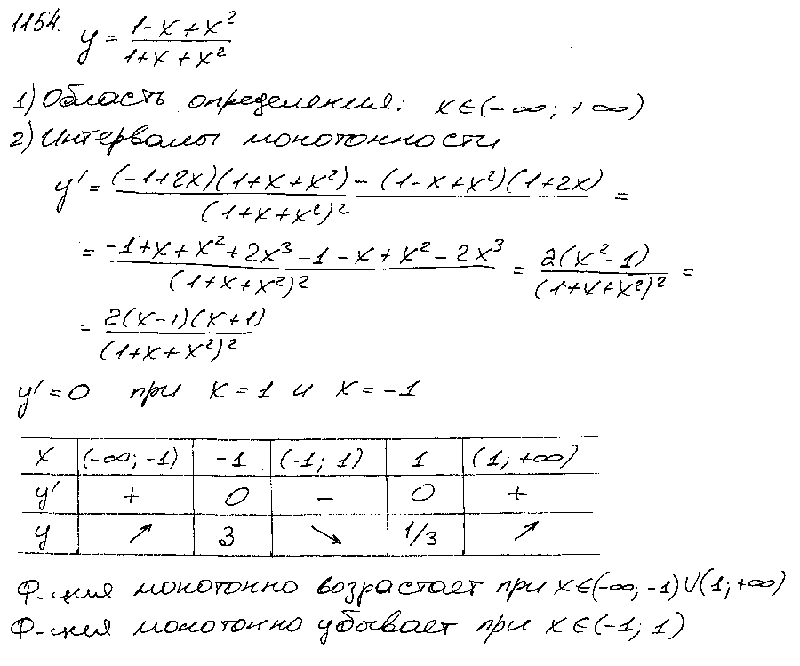 1154. y = (1-x+x²)/(1+x+x²)
1) Область определения: x∈(-∞; +∞)
2) Интервалы монотонности
y' = ((-1+2x)(1+x+x²) - (1-x+x²)(1+2x))/(1+x+x²)² =
= (-1+x+x²+2x³-1-x+x²-2x³)/(1+x+x²)² = 2(x²-1)/(1+x+x²)² =
= 2(x-1)(x+1)/(1+x+x²)²
y' = 0 при x = 1 и x = -1
x (-∞; -1) -1 (-1; 1) 1 (1; +∞)
y' + 0 - 0 +
y ↗ 3 ↘ 1/3 ↗
Ф-ция монотонно возрастает при x∈(-∞; -1)∪(1; +∞)
Ф-ция монотонно убывает при x∈(-1; 1)